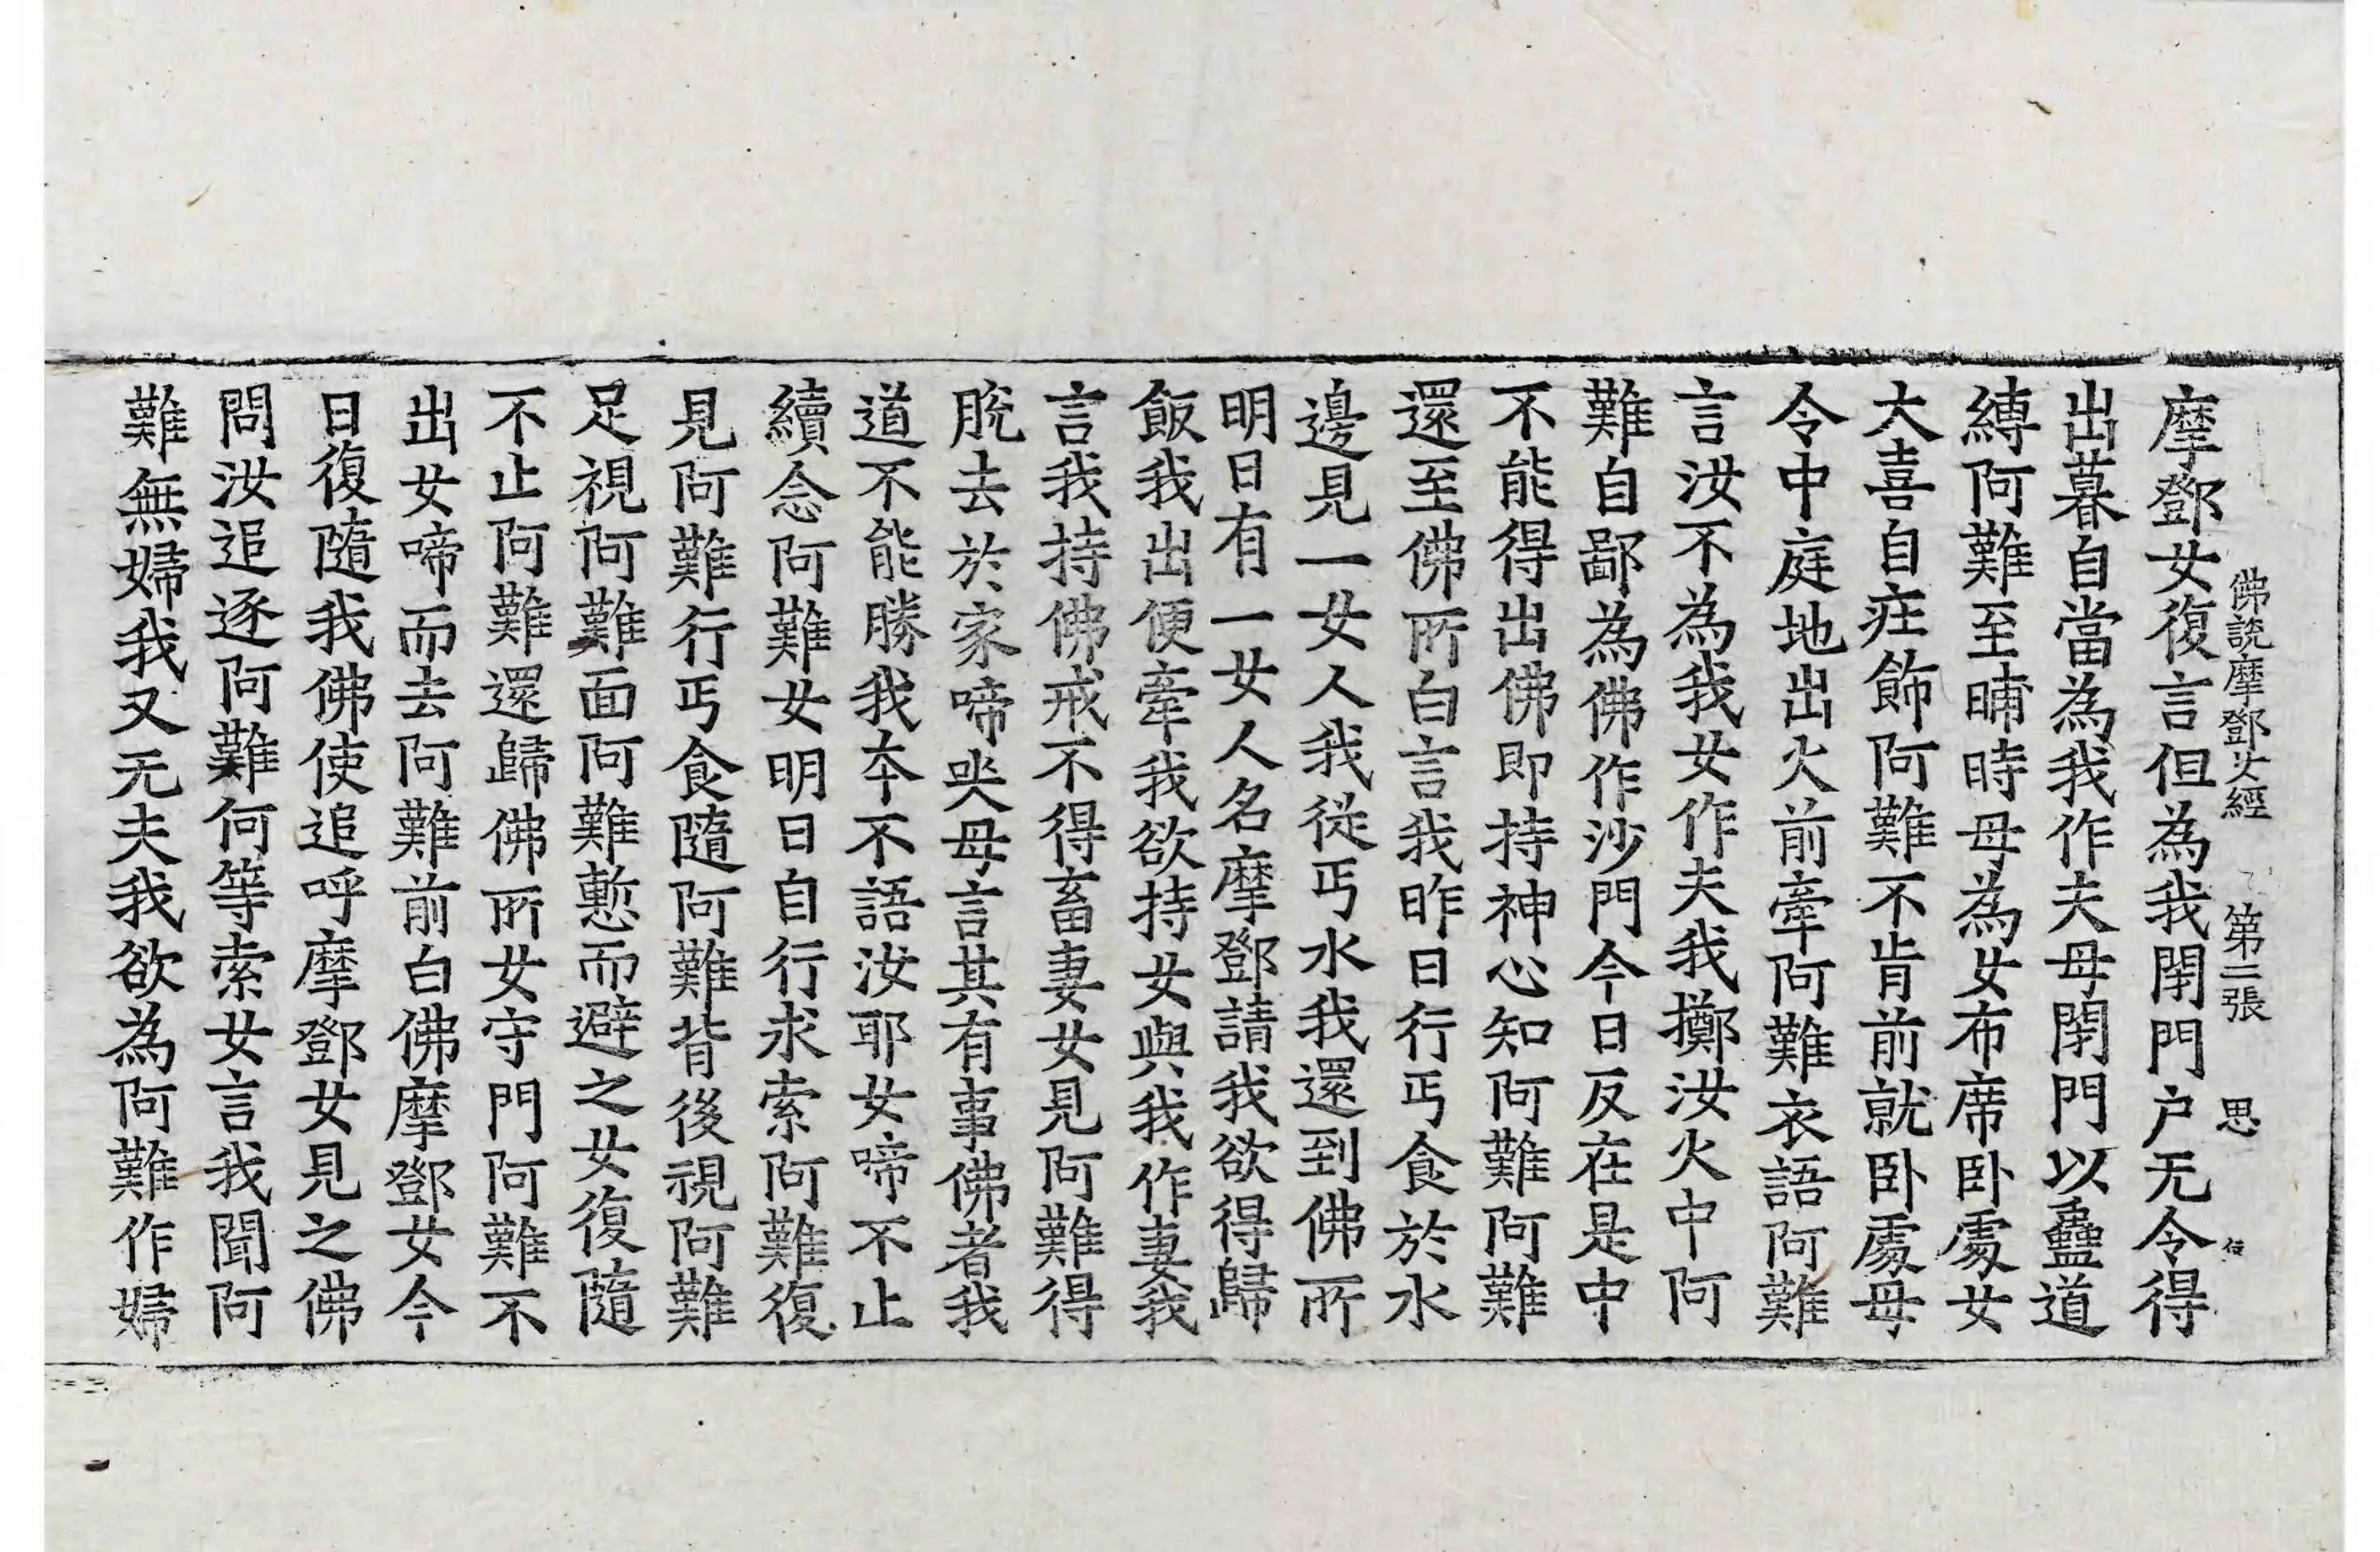 佛說摩鄧女經 第二張 思
摩鄧女復言但為我閇門户无令得
出暮自當為我作夫母閇門以蠱道
縛阿難至晡時母為女布席卧處女
大喜自庄飾阿難不肯前就卧處母
令中庭地出火前牽阿難衣語阿難
言汝不為我女作夫我擲汝火中阿
難自鄙為佛作沙門今日反在是中
不能得出佛即持神心知阿難阿難
還至佛所白言我昨日行丐食於水
邊見一女人我從丐水我還到佛所
明日有一女人名摩鄧請我欲得歸
飯我出便牽我欲持女與我作妻我
言我持佛戒不得畜妻女見阿難得
脫去於家啼哭母言其有事佛者我
道不能勝我夲不語汝耶女啼不止
續念阿難女明日自行求索阿難復
見阿難行丐食隨阿難背後視阿難
足視阿難面阿難慙而避之女復隨
不止阿難還歸佛所女守門阿難不
出女啼而去阿難前白佛摩鄧女今
日復隨我佛使追呼摩鄧女見之佛
問汝追逐阿難何等索女言我聞阿
難無婦我又无夫我欲為阿難作婦